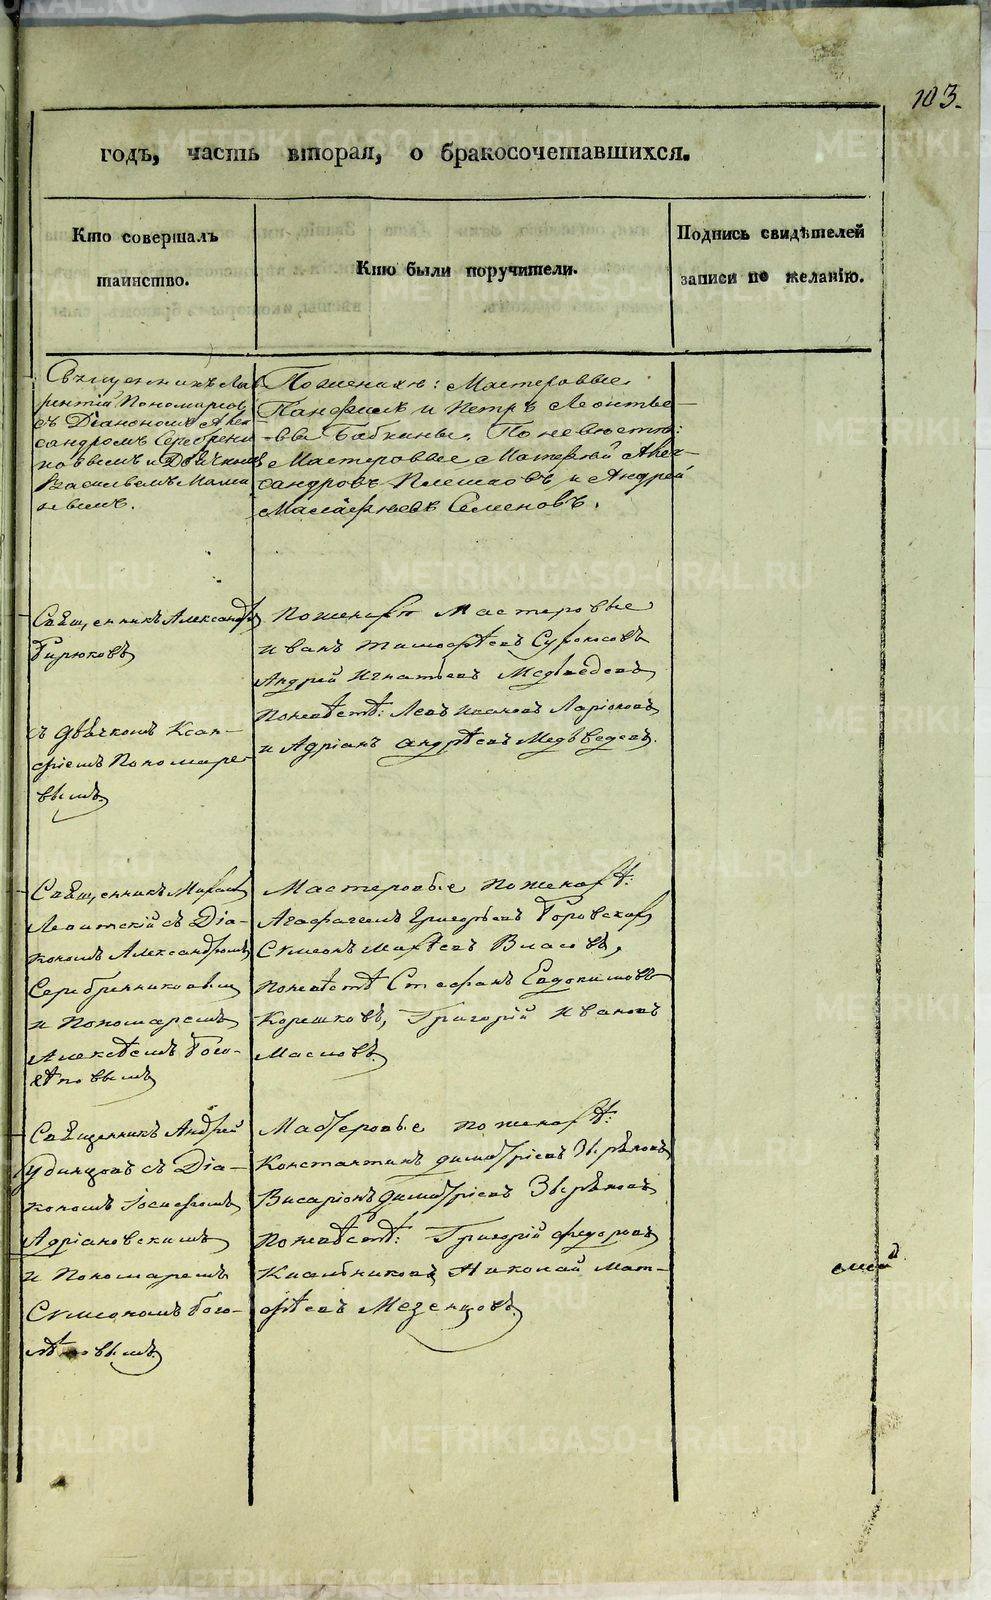 103.
годъ, часть вторая, о бракосочетавшихся.
Кто совершалъ
таинство.
Кто были поручители.
Подпись свидѣтелей
записи по желанію.
Священникъ Лав
рентій Пономаревъ
съ Діакономъ Алек
сандромъ Серебрени
ковымъ и Дьячкомъ
Васильемъ
Поженихѣ: Мастеровые
Панфилъ и Петръ Леонтье-
вы Бабкины. Поневѣстѣ:
Мастеровые Матвѣй Алек-
сандровъ Плешковъ и Андрей
Семеновъ.
Священникъ Александръ
Бирюковъ
съ дьячкомъ Ксан-
фіемъ Пономаре-
вымъ
Поженихѣ Мастеровые
Иванъ Тимофѣевъ
Андрей Игнатьевъ Медведевъ
Поневѣстѣ: Левъ Ивановъ Ларіоновъ
и Адріанъ Андрѣевъ Медвѣдевъ.
Священникъ Михаилъ
Левитскій съ Діа-
кономъ Александромъ
Серебренниковым
и Пономаремъ
Алексѣемъ Бого-
лѣповымъ
Мастеровые поженихѣ:
Григорьевъ Боровскихъ
Симеонъ Власовъ,
поневѣстѣ Стефанъ Евдокимовъ
Корешковъ, Григорій Ивановъ
Масловъ.
Священникъ Андрей
Удинцовъ съ Діа-
кономъ Іосифомъ
Адріановскимъ
и Пономаремъ
Симеономъ Бого-
лѣповымъ
Мастеровые поженихѣ:
Константинъ Димитріевъ Звѣревъ
Висаріонъ Димитріевъ
поневѣстѣ: Григорій Федоровъ
Николай Мат-
фѣевъ Мезенцовъ.
METRIKI.GASO-URAL.RU